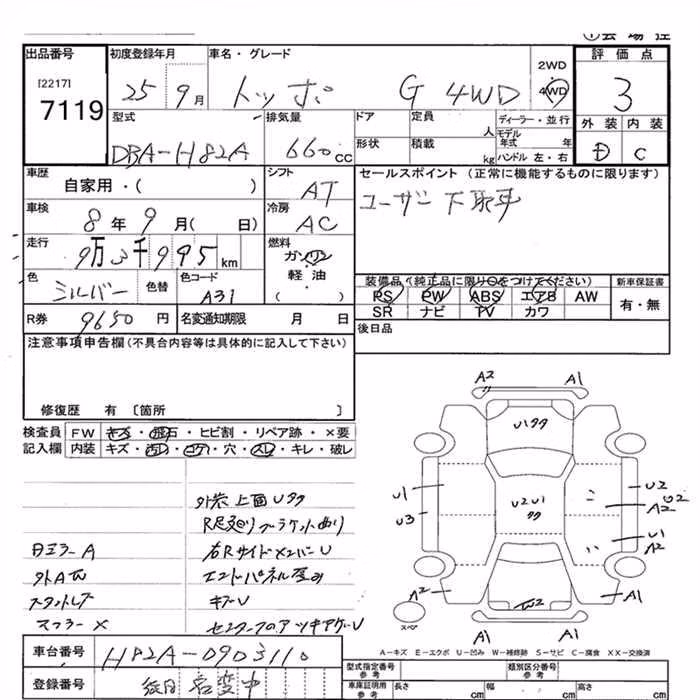 出品番号
[2217]
7119
初度登録年月
25 9月
車名・グレード
トッポ G 4WD
2WD
4WD
評価点
3
外装 内装
D C
型式
DBA-H82A
排気量
660 CC
ドア
形状
定員
人
積載
kg
ディーラー・並行
モデル
年式 年
ハンドル 左・右
車歴
自家用・( )
シフト
AT
セールスポイント (正常に機能するものに限ります)
ユーザー下取車
車検
8年 9月( 日)
冷房
AC
走行
9万3千995km
燃料
ガソリン
軽油
( )
色
シルバー
色替
色コード
A31
装備品(純正品に限り○をつけてください)
PS PW ABS エアB AW
SR ナビ TV カワ
新車保証書
有・無
R券
9650円
名変通知期限 月 日
後日品
注意事項申告欄(不具合内容等は具体的に記入して下さい)
修復歴 有 〔箇所 〕
検査員
記入欄
FW キズ・飛石・ヒビ割・リペア跡・×要
内装 キズ・汚レ・コゲ・穴・スレ・キレ・破レ
外装上面Uタタ
R足廻りブラケットめり
右RサイドメンバーU
エンドパネル歪み
キズU
A
マフラー×
A2 A1
U1タタ
U1
U3
U2U1
タタ
U2
A2
U2
U1
A2
A2
A1
スペア
A1 A1
A-キズ E-エクボ U-凹み W-補修跡 S-サビ C-腐食 XX-交換済
車台番号
H82A-0903110
登録番号
名変中
型式指定番号
参考
類別区分番号
参考
車庫証明用
参考
長さ cm 幅 cm 高さ cm